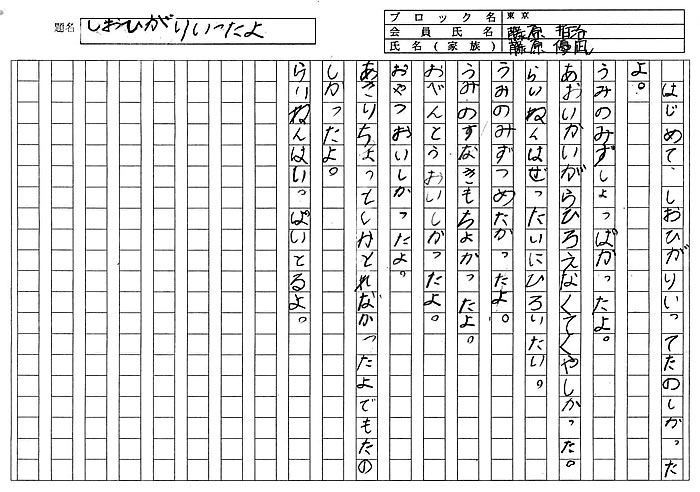 題名 しおひがりいったよ
ブロック名 東京
会員氏名 藤原 哲治
氏名(家族) 藤原 優凪
はじめて、しおひがりいってたのしかった
よ。
うみのみずしょっぱかったよ。
あおいかいがらひろえなくてくやしかった。
らいねんはぜったいにひろいたい。
うみのみずつめたかったよ。
うみのすなきもちよかったよ。
おべんとうおいしかったよ。
おやつおいしかったよ。
あさりちょっとしかとれなかったよでもたの
しかったよ。
らいねんはいっぱいとるよ。